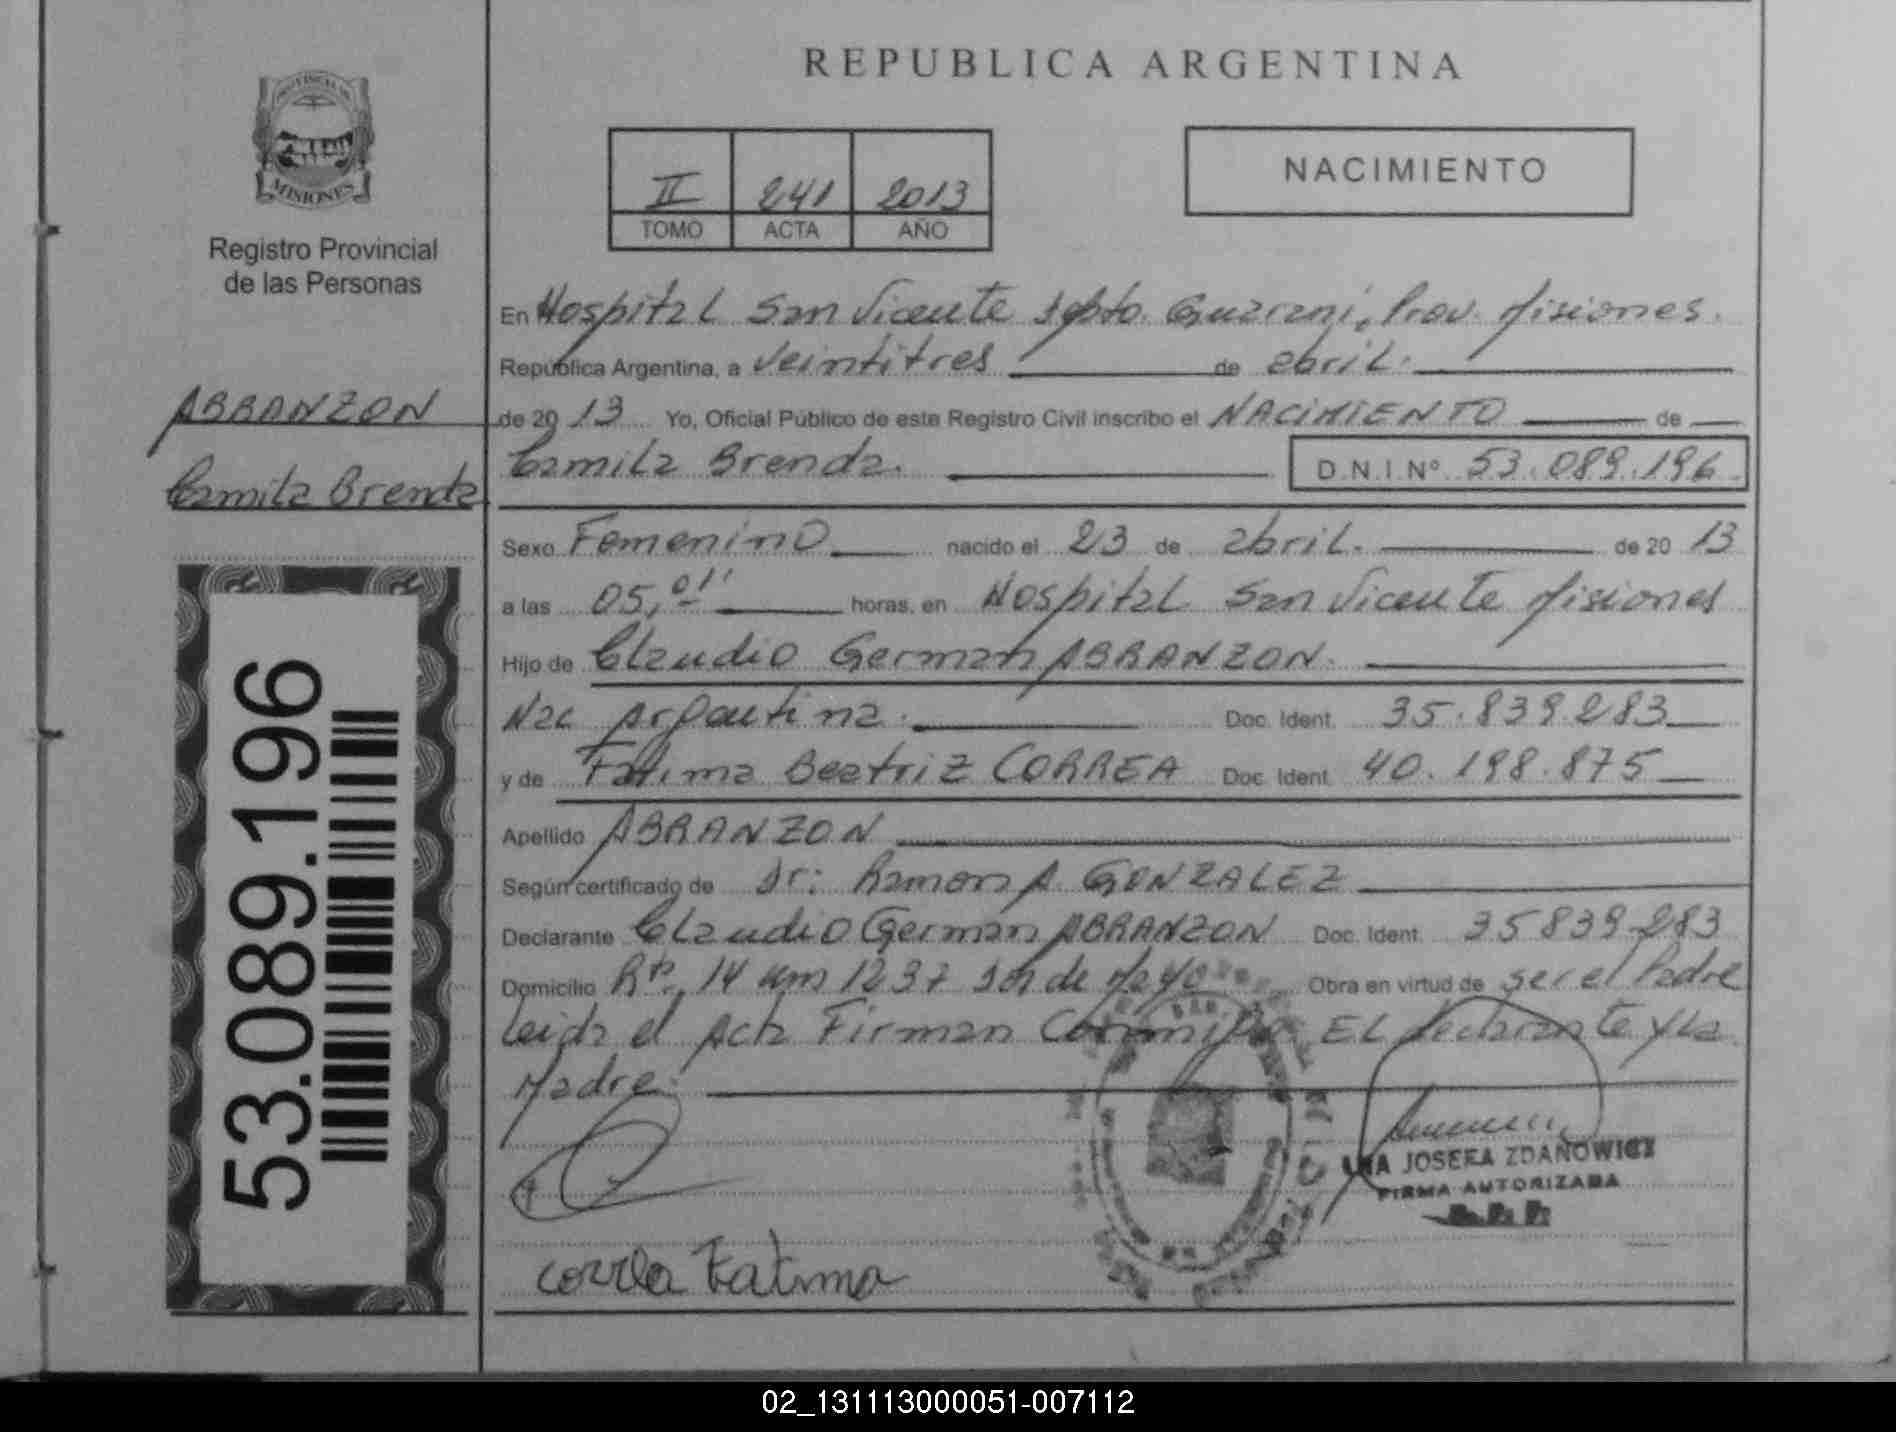 REPUBLICA ARGENTINA
PROVINCIA DE
MISIONES
Registro Provincial
de las Personas
II 241 2013
TOMO ACTA AÑO
NACIMIENTO
ABRANZON
Camila Brenda
53.089.196
En Hospital San Vicente Dpto. Guarani, Prov. Misiones.
República Argentina, a Veintitres de abril.
de 2013 Yo, Oficial Público de este Registro Civil inscribo el NACIMIENTO de
Camila Brenda. D.N.I.Nº 53.089.196
Sexo Femenino nacido el 23 de abril. de 2013
a las 05,01' horas, en Hospital San Vicente Misiones
Hijo de Claudio German ABRANZON.
Nac Argentina. Doc. Ident. 35.839.283
y de Fatima Beatriz CORREA Doc. Ident. 40.198.875
Apellido ABRANZON
Según certificado de Dr: Ramon A. GONZALEZ
Declarante Claudio German ABRANZON Doc. Ident. 35839283
Domicilio Rta. 14 Km 1237 Dos de Mayo Obra en virtud de ser el Padre
Leida el Acta Firman Conmigo EL Declarante y La
Madre.
JOSEFA ZDANOWICZ
FIRMA AUTORIZADA
Correa Fatima
02_131113000051-007112